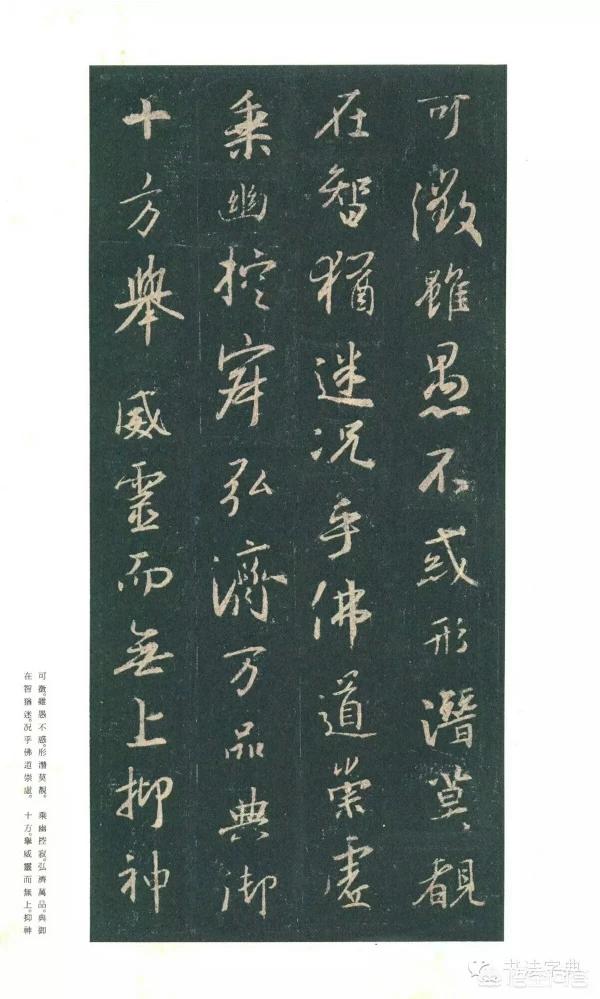 可徵雖愚不惑形潛莫覩
在智猶迷况乎佛道崇虛
乘幽控寂弘濟万品典御
十方舉威靈而無上抑神
可徵。雖愚不惑。形潛莫覩。 乘幽控寂。弘濟萬品。典御
在智猶迷。况乎佛道崇虛。 十方。舉威靈而無上。抑神
书法字典